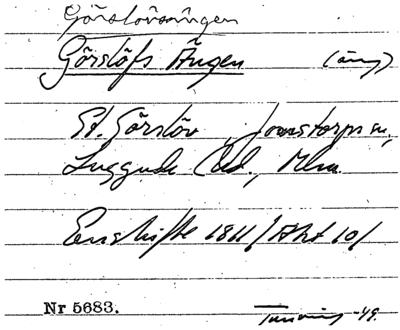 Görslövsängen
Görslöfs Ängen (äng)
St. Görslöv, Jonstorps sn,
Luggude hd., Mlm.
Enskifte 1811 /Akt 10/
Nr 5683. -49.